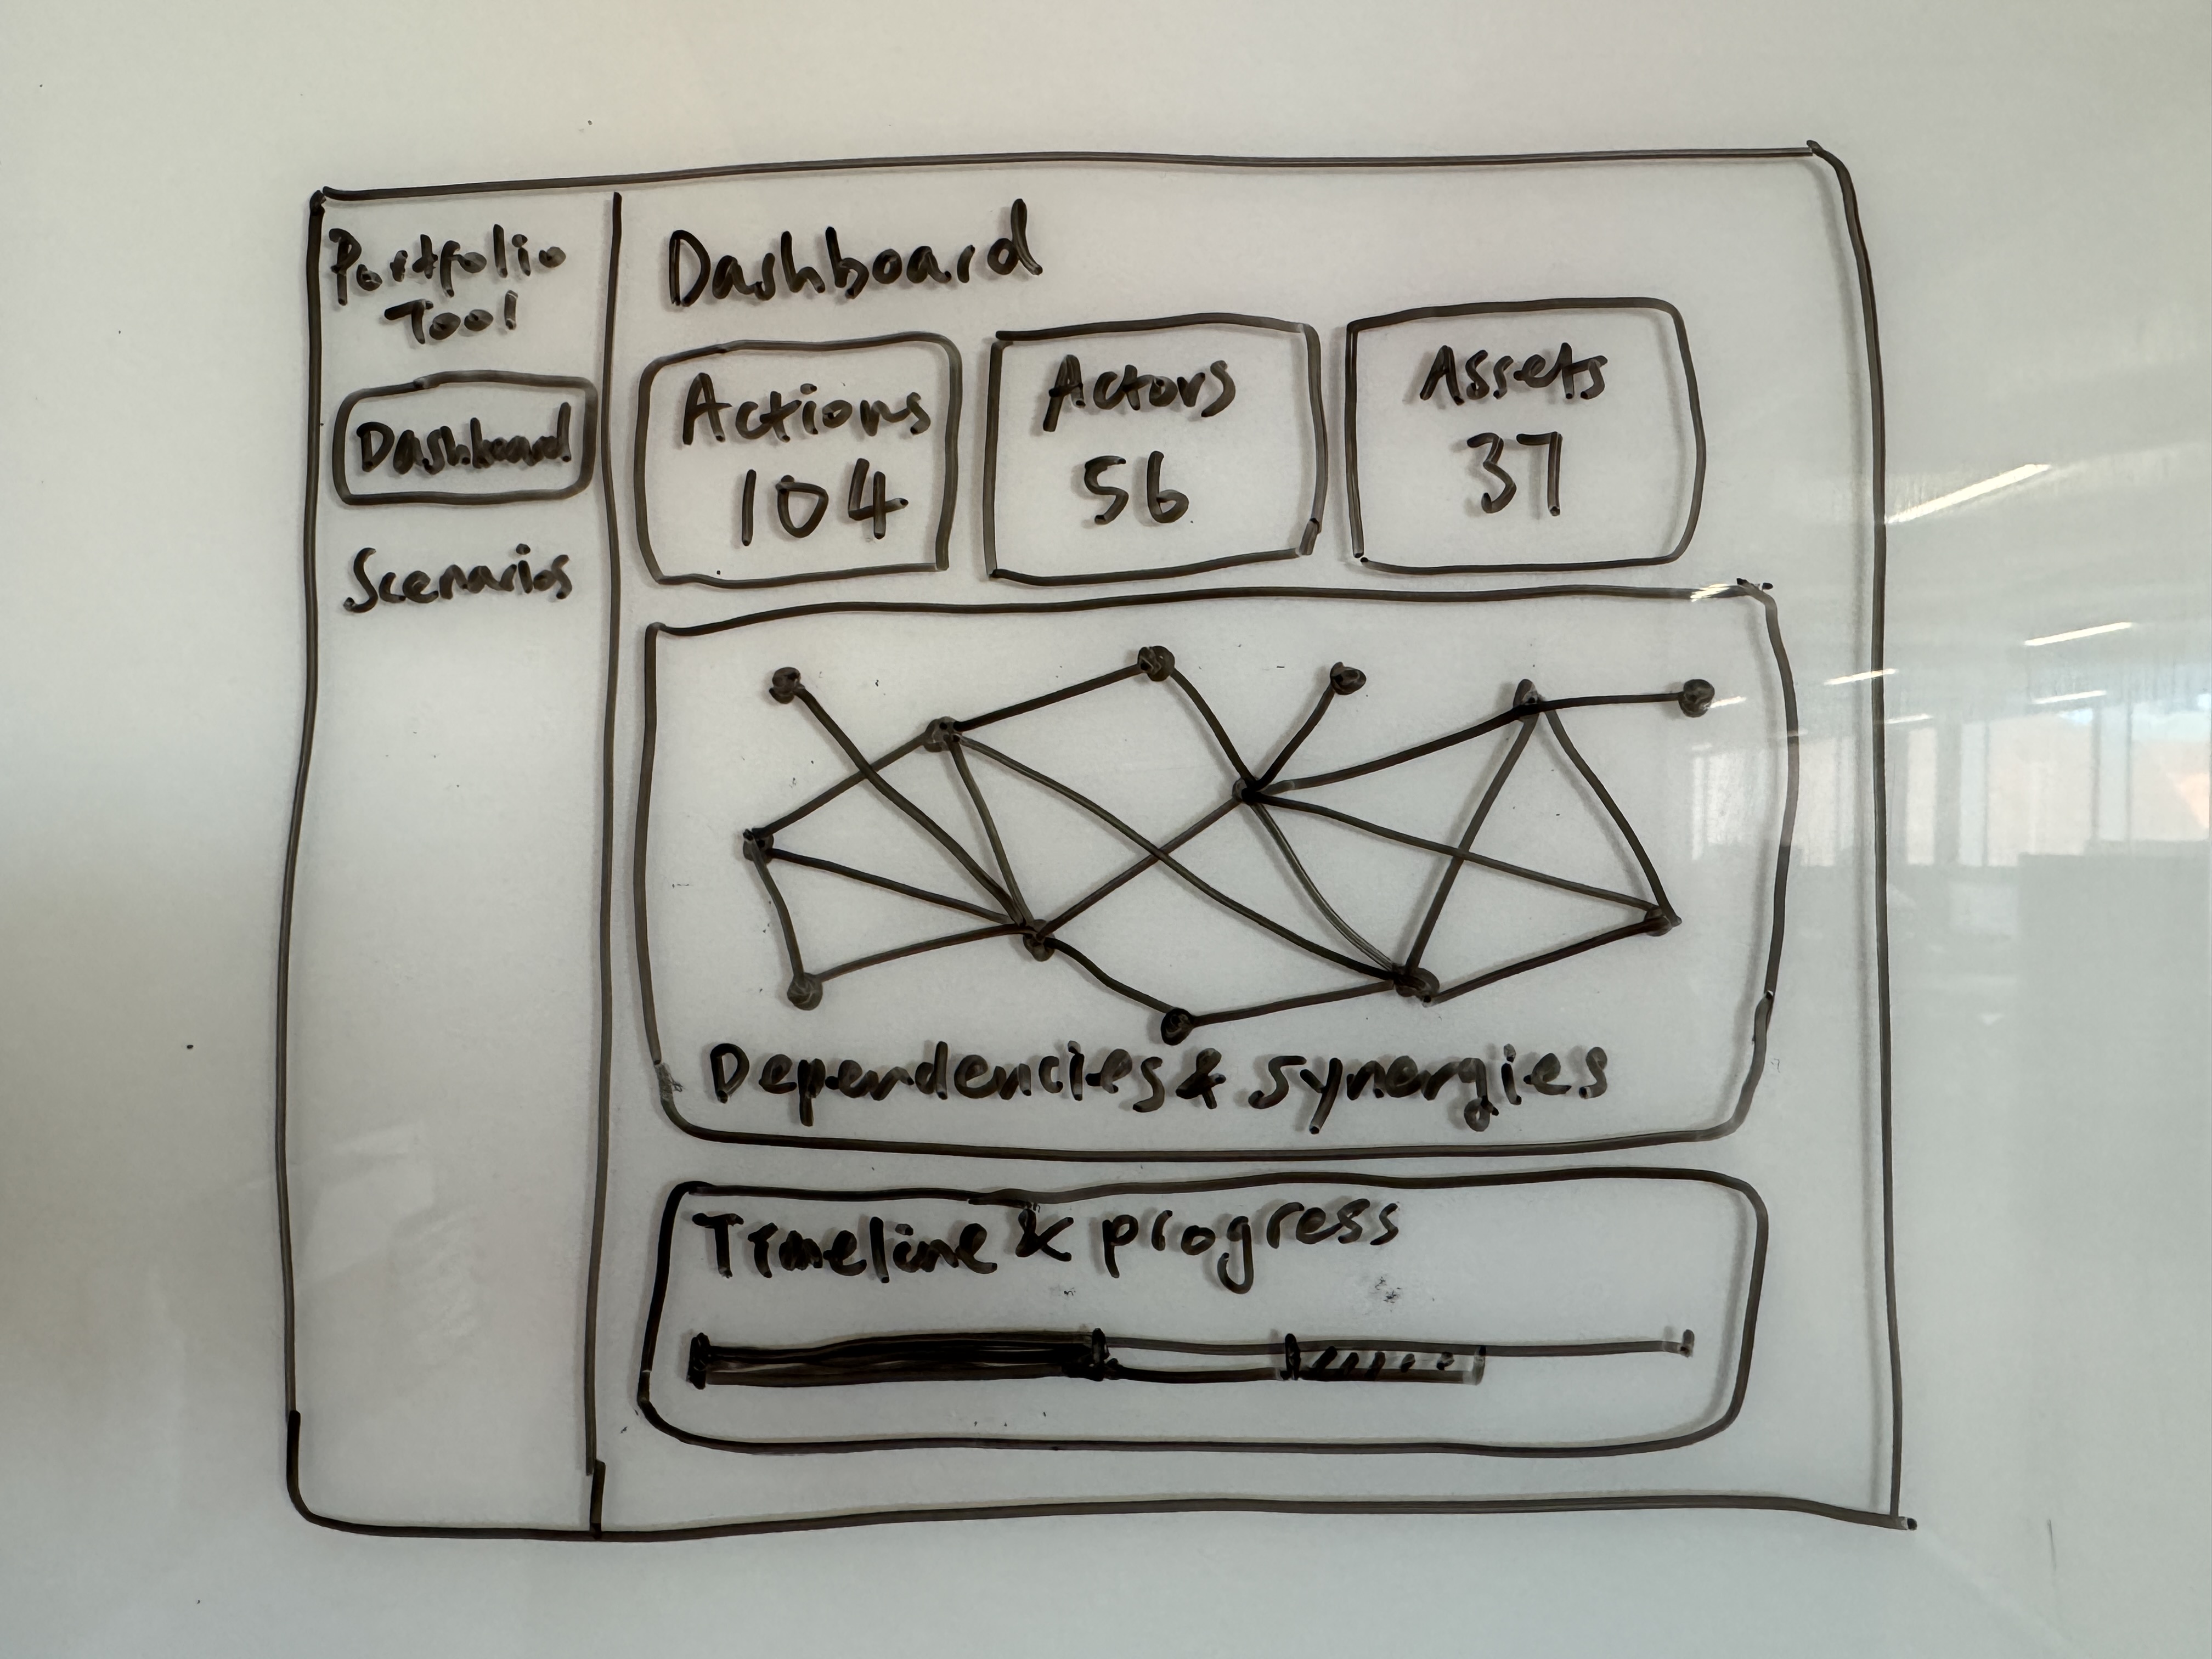 Portfolio
Tool
Dashboard
Scenarios
Dashboard
Actions
104
Actors
56
Assets
37
Dependencies & synergies
Timeline & progress